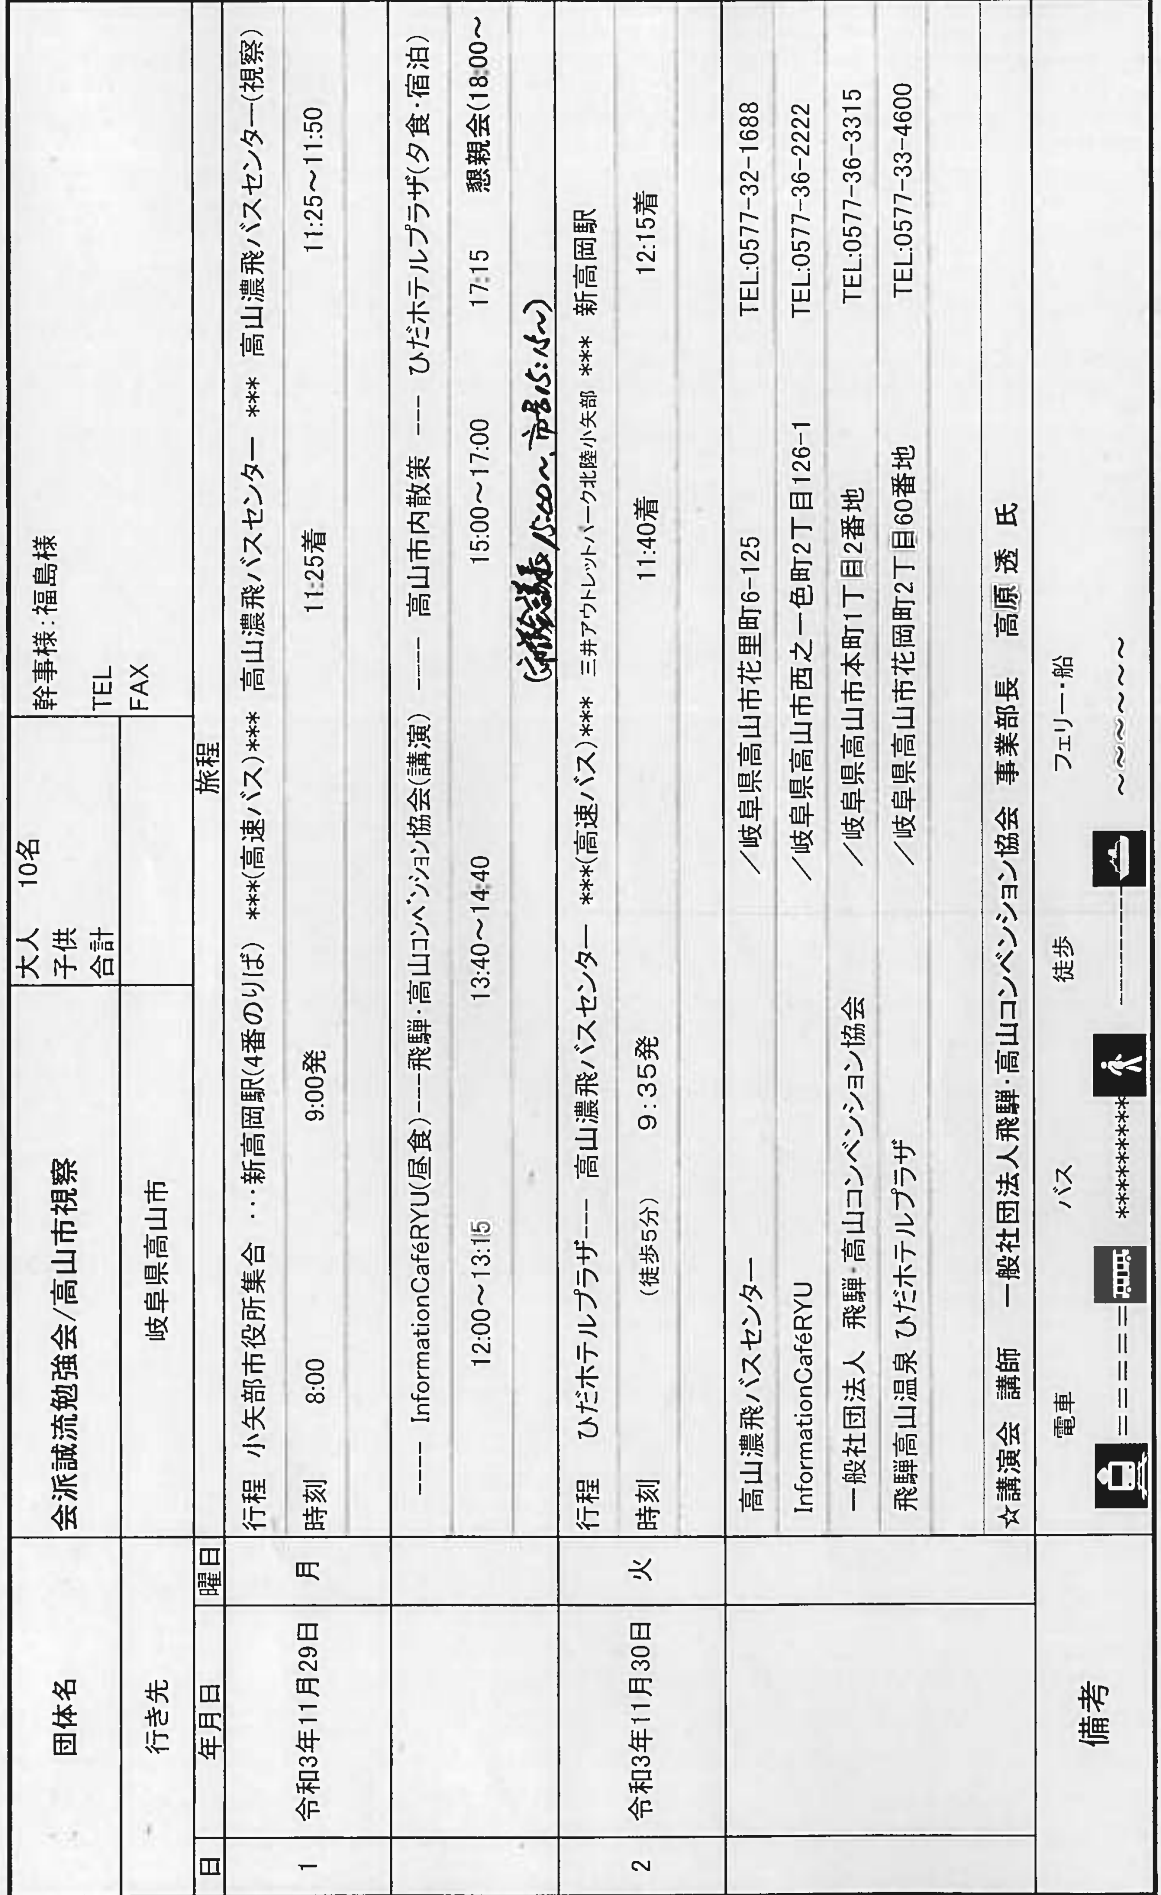 団体名 会派誠流勉強会/高山市視察 大人 10名 幹事様:福島様
子供
合計 TEL
行き先 岐阜県高山市 FAX
日 年月日 曜日 旅程
行程 小矢部市役所集合 ···新高岡駅(4番のりば) ***(高速バス)*** 高山濃飛バスセンター *** 高山濃飛バスセンター(視察)
1 令和3年11月29日 月 時刻 8:00 9:00発 11:25着 11:25～11:50
---- InformationCaféRYU(昼食)---飛騨・高山コンベンション協会(講演) ---- 高山市内散策 --- ひだホテルプラザ(夕食・宿泊)
12:00～13:15 13:40～14:40 15:00～17:00 17:15 懇親会(18:00～
15:00～、市長15:15～)
行程 ひだホテルプラザ--- 高山濃飛バスセンター ***(高速バス)*** 三井アウトレットパーク北陸小矢部 *** 新高岡駅
2 令和3年11月30日 火 時刻 (徒歩5分) 9:35発 11:40着 12:15着
高山濃飛バスセンター /岐阜県高山市花里町6-125 TEL:0577-32-1688
InformationCaféRYU /岐阜県高山市西之一色町2丁目126-1 TEL:0577-36-2222
一般社団法人 飛騨・高山コンベンション協会 /岐阜県高山市本町1丁目2番地 TEL:0577-36-3315
飛騨高山温泉 ひだホテルプラザ /岐阜県高山市花岡町2丁目60番地 TEL:0577-33-4600
☆講演会 講師 一般社団法人飛騨・高山コンベンション協会 事業部長 高原 透 氏
備考 電車 バス 徒歩 フェリー・船
====== ******** ---------- ～～～～～～～